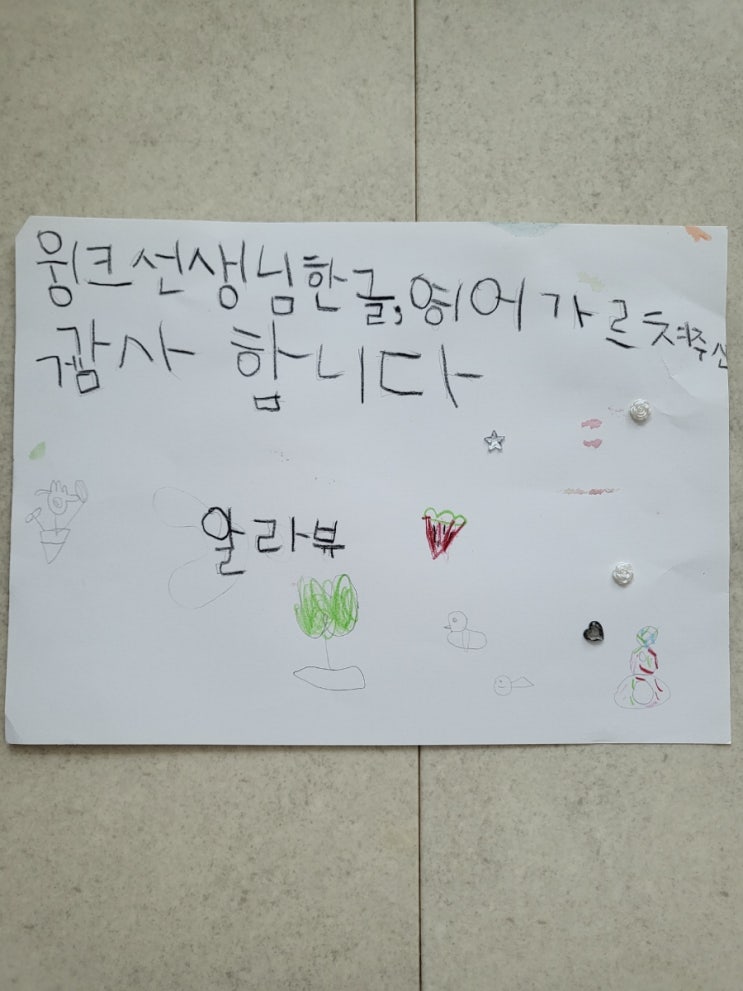 윙크선생님한글,영어 가르쳐주신
감사 합니다
알라뷰